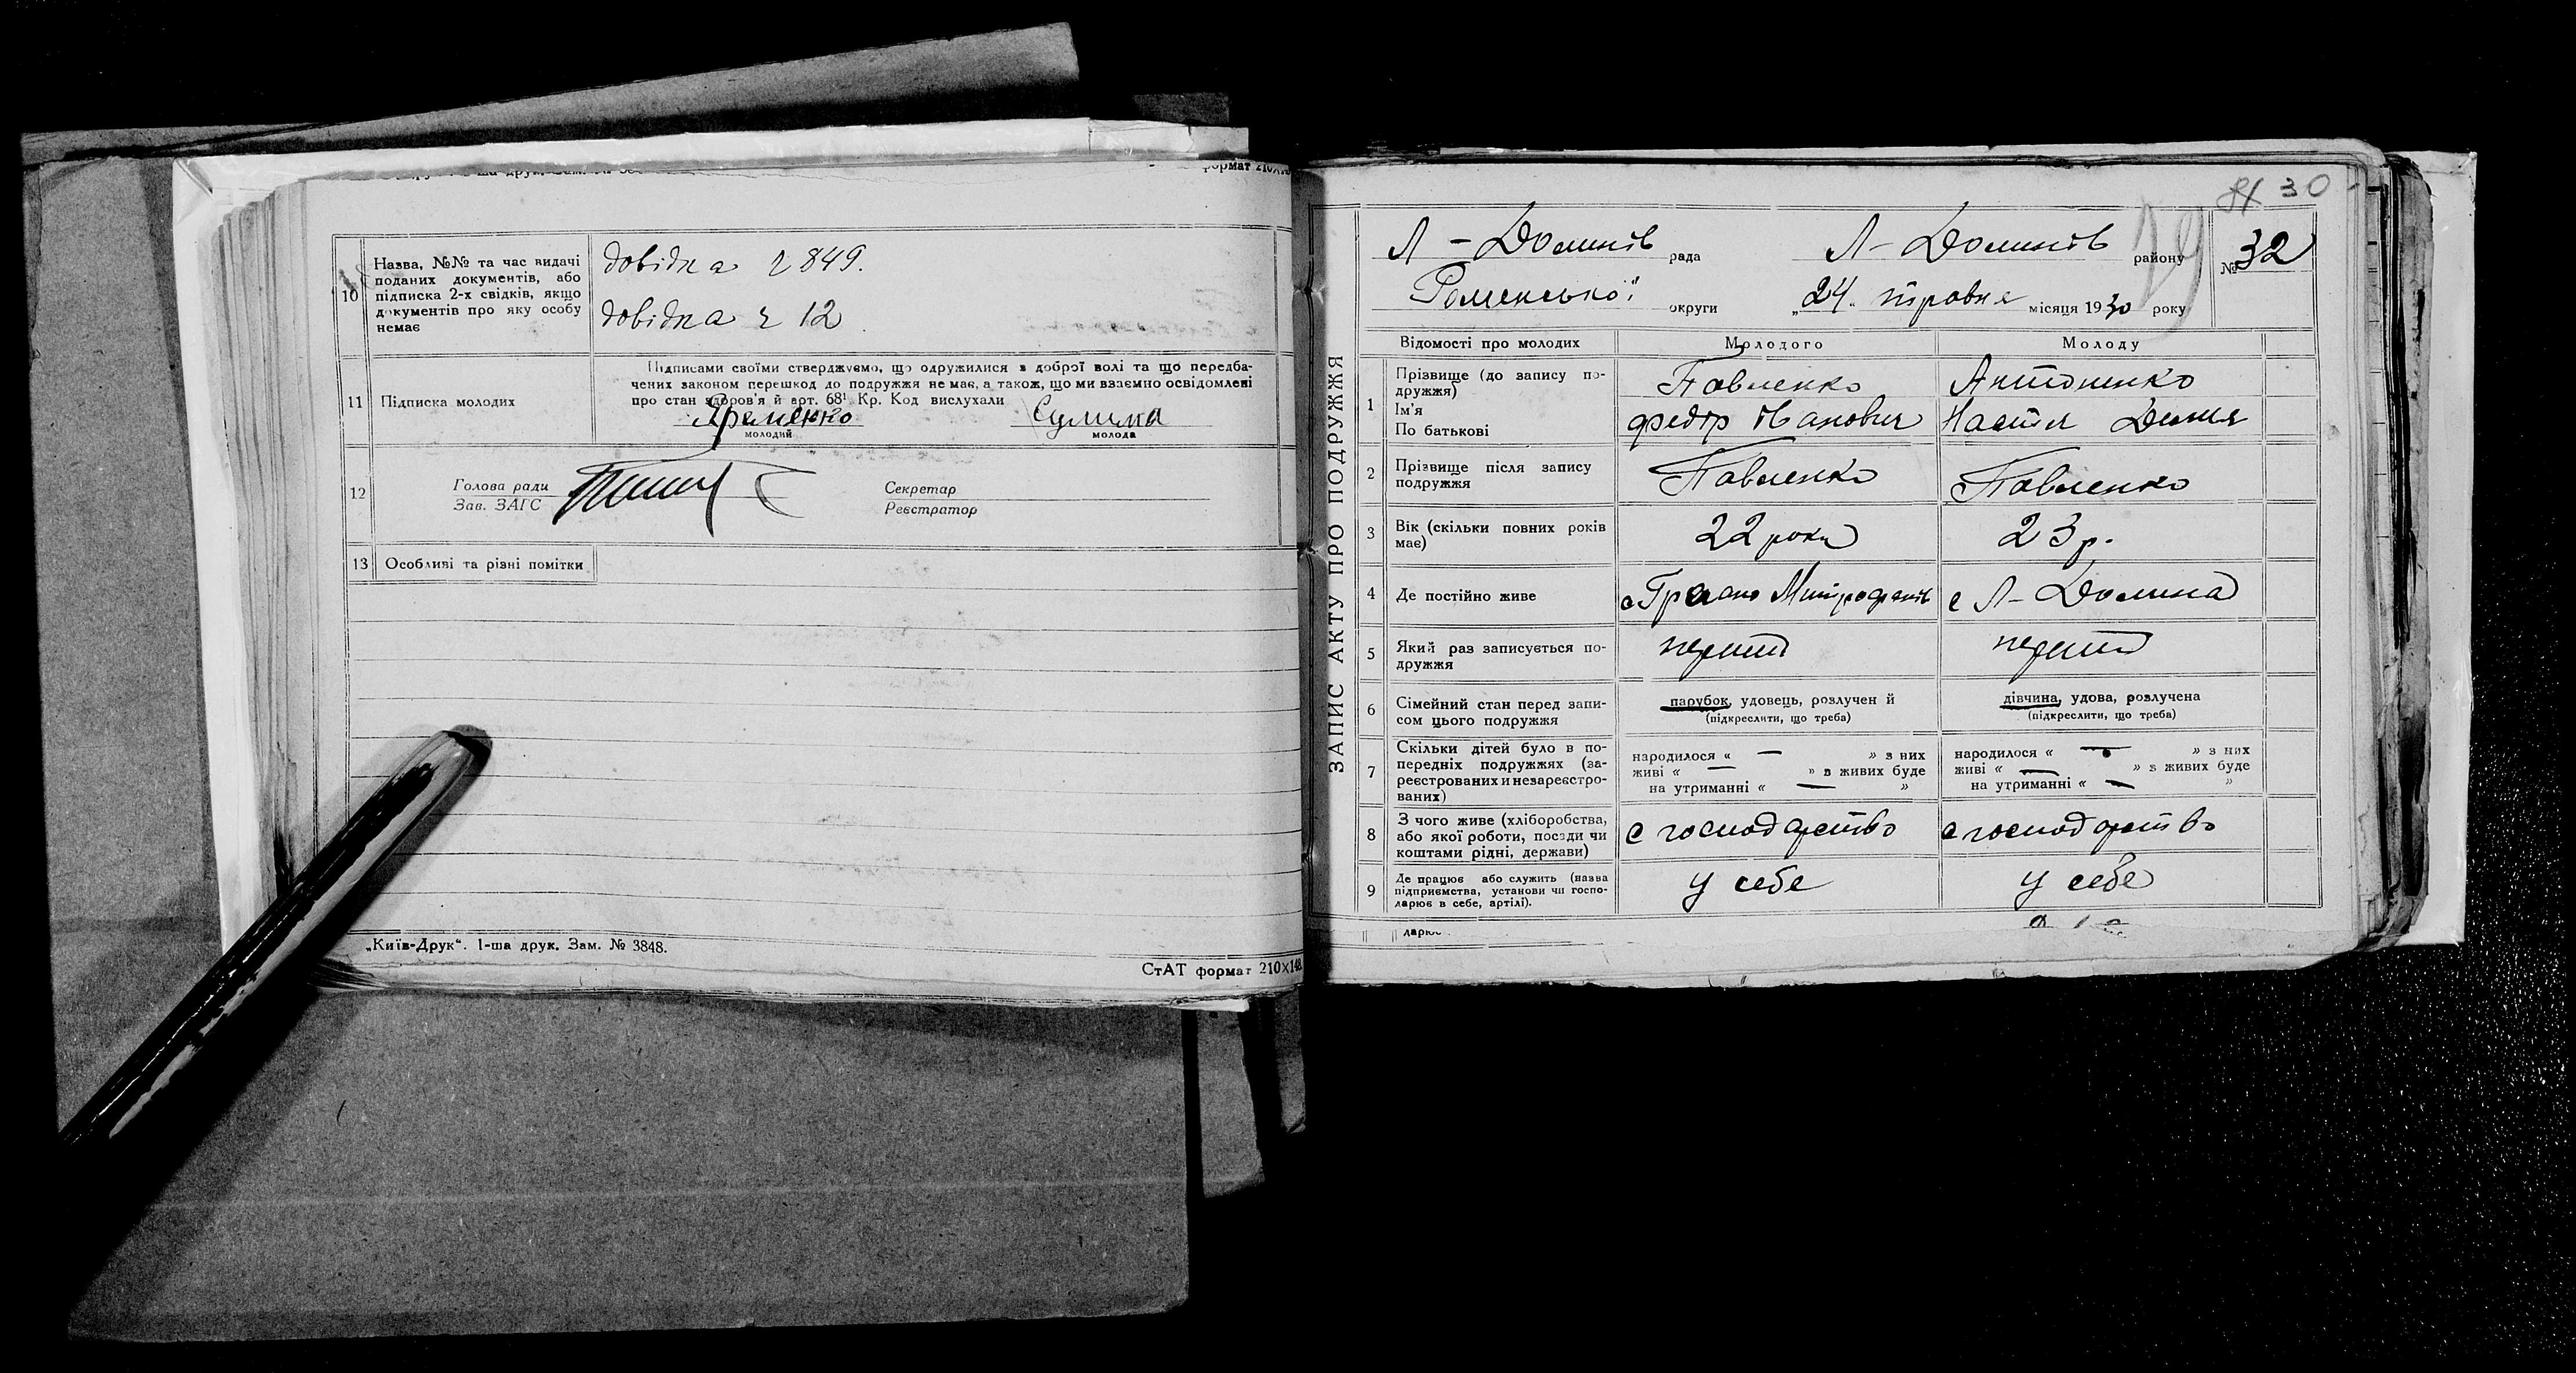 формат 210×148
10
Назва, №№ та час видачі
поданих документів, або
підписка 2-х свідків, якщо
документів про яку особу
немає
довідка 2849.
довідка г 12
11
Підписка молодих
Підписами своїми стверджуємо, що одружилися з доброї волі та що передба-
чених законом перешкод до подружжя не має, а також, що ми взаємно освідомлені
про стан здоров'я й арт. 68¹ Кр. Код вислухали
Яременко Сулима
молодий молода
12
Голова ради
Зав. ЗАГС
Секретар
Реєстратор
13 Особливі та різні помітки
„Київ-Друк“. 1-ша друк. Зам. № 3848.
СтАТ формат 210×148
30
ЗАПИС АКТУ ПРО ПОДРУЖЖЯ
Л - Долинів рада Л - Долинів району № 32
Роменської округи „24“ травня місяця 1930 року
Відомості про молодих Молодого Молоду
1
Прізвище (до запису по-
дружжя)
Ім'я
По батькові
Павленко Антоненко
Федір Іванович Настя
2
Прізвище після запису
подружжя
Павленко Павленко
3
Вік (скільки повних років
має)
22 роки 23 р.
4 Де постійно живе
с Л - Долина
5
Який раз записується по-
дружжя
перший перший
6
Сімейний стан перед запи-
сом цього подружжя
парубок, удовець, розлучен й
(підкреслити, що треба)
дівчина, удова, розлучена
(підкреслити, що треба)
7
Скільки дітей було в по-
передніх подружжях (за-
реєстрованих и незареєстро-
ваних)
народилося « — » з них
живі « — » з живих буде
на утриманні « — »
народилося « — » з них
живі « — » з живих буде
на утриманні « — »
8
З чого живе (хліборобства,
або якої роботи, посади чи
коштами рідні, держави)
с господарство с господарство
9
Де працює або служить (назва
підприємства, установи чи госпо-
дарює в себе, артілі).
у себе у себе